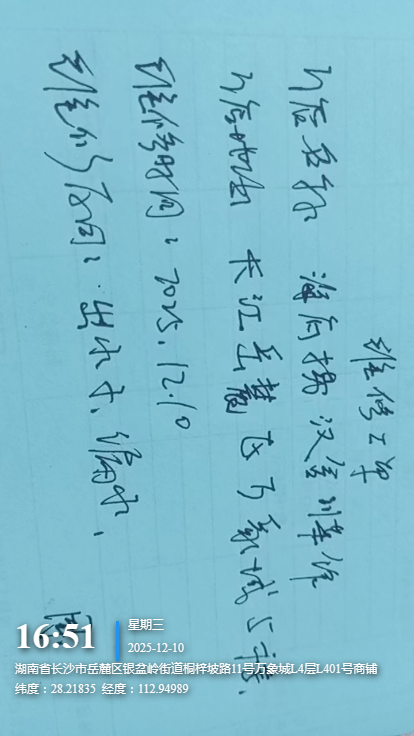 维修工单
门店名称 海 捞 汉 川
门店地址 长江岳麓区万象城5楼
维修时间：2025.12.10
维修 问：出水小、漏水、
16:51
星期三
2025-12-10
湖南省长沙市岳麓区银盆岭街道桐梓坡路11号万象城L4层L401号商铺
纬度：28.21835 经度：112.94989